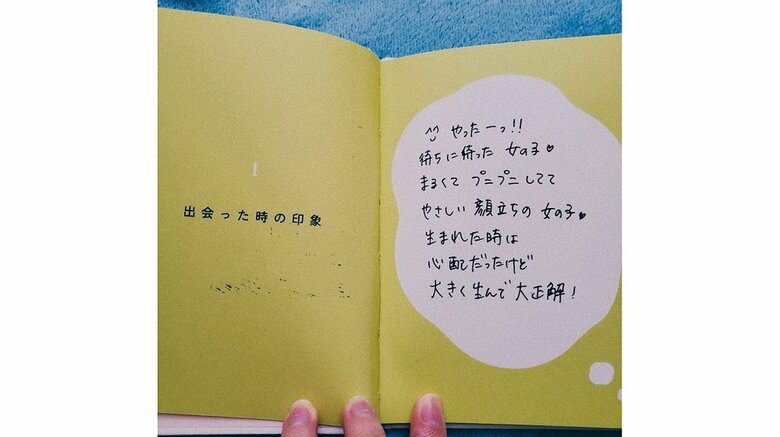 1
出会った時の印象
^^ やったーっ!!
待ちに待った 女の子♥
まるくて プニプニしてて
やさしい 顔立ちの 女の子♥
生まれた時は
心配だったけど
大きく生んで 大正解!